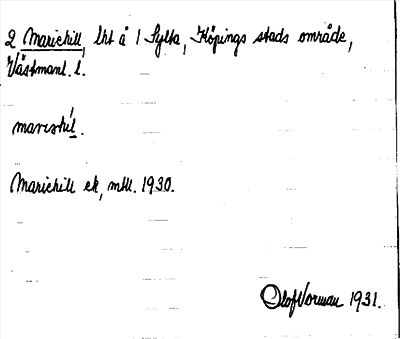 2 Mariehill, lht å 1 Sylta, Köpings stads område,
Västmanl. l.
Mariehill ek, mtl. 1930.
Olof Norman 1931.